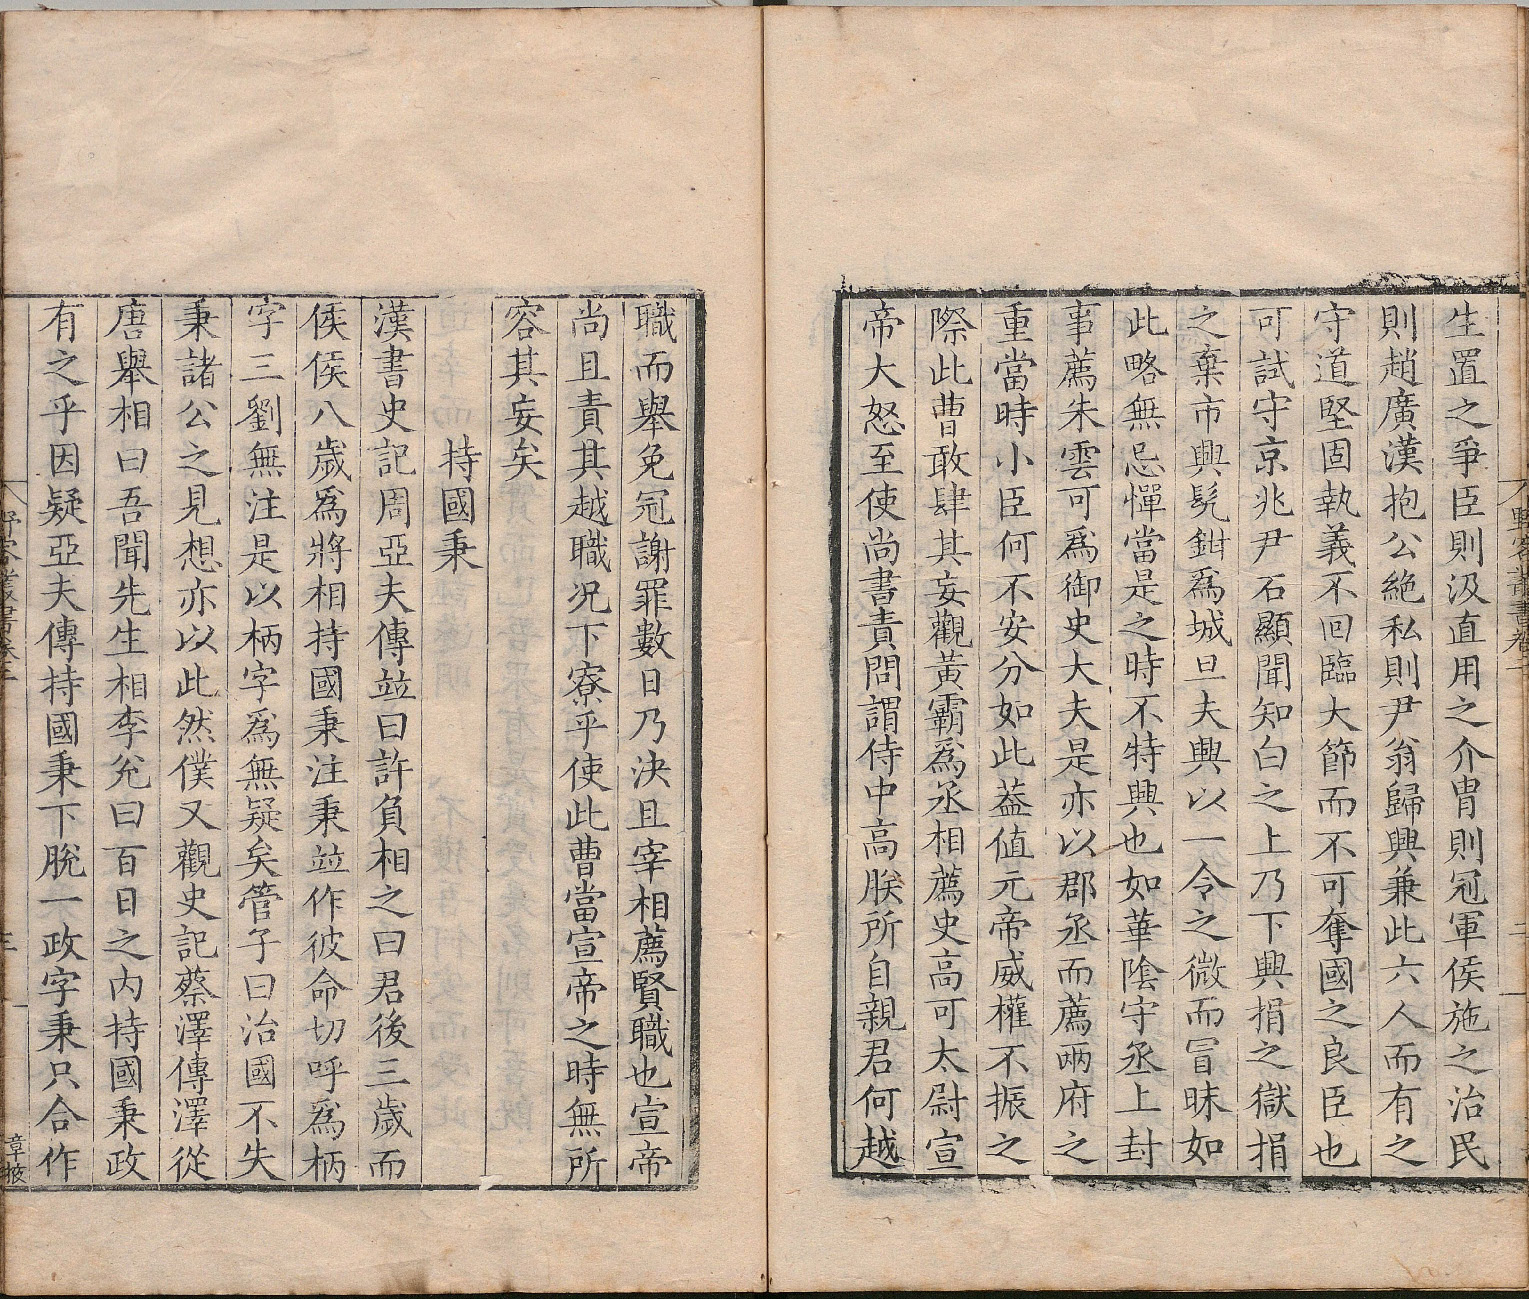 生置之爭臣則汲直用之介胄則冠軍侯施之治民
則趙廣漢抱公絶私則尹翁歸興兼此六人而有之
守道堅固執義不回臨大節而不可奪國之良臣也
可試守京兆尹石顯聞知白之上乃下興捐之獄捐
之棄市興髡鉗爲城旦夫興以一令之微而冒昧如
此略無忌憚當是之時不特興也如華陰守丞上封
事薦朱雲可爲御史大夫是亦以郡丞而薦兩府之
重當時小臣何不安分如此葢值元帝威權不振之
際此曹敢肆其妄觀黃霸爲丞相薦史高可太尉宣
帝大怒至使尚書責問謂侍中高朕所自親君何越
職而舉免冠謝罪數日乃決且宰相薦賢職也宣帝
尚且責其越職況下寮乎使此曹當宣帝之時無所
容其妄矣
持國秉
漢書史記周亞夫傳竝曰許負相之曰君後三歲而
侯侯八歲爲將相持國秉注秉竝作彼命切呼爲柄
字三劉無注是以柄字爲無疑矣管子曰治國不失
秉諸公之見想亦以此然僕又觀史記蔡澤傳澤從
唐舉相曰吾聞先生相李兊曰百日之內持國秉政
有之乎因疑亞夫傳持國秉下脫一政字秉只合作
野客叢書卷三
三
章掖